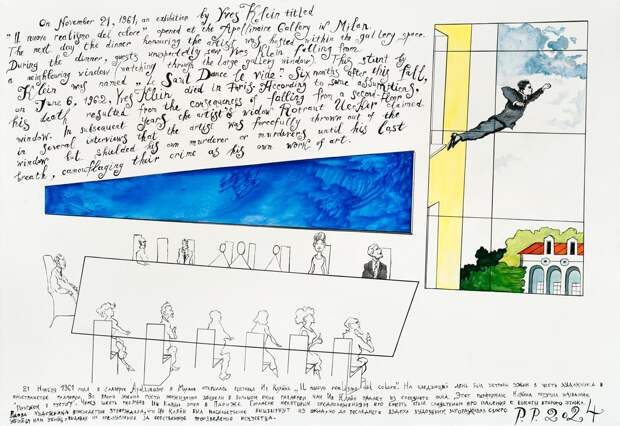 On November 21, 1961, an exhibition by Yves Klein titled
"Il nuovo realismo del colore" opened at the Apollinaire Gallery in Milan.
The next day the dinner honouring the artist was hosted within the gallery space.
During the dinner, guests unexpectedly saw Yves Klein falling from
a neighbouring window (watching through the large gallery window). This stunt by
Klein was named "Saut Dance le vide. Six months after this fall,
on June 6, 1962, Yves Klein died in Paris. According to some assumptions,
his death resulted from the consequences of falling from a second-floor
window. In subsequent years the artist's widow Rotraut Uecker claimed
in several interviews that the artist was forcefully thrown out of the
window but shielded his own murderer or murderers until his last
breath, camouflaging their crime as his own work of art.
21 ноября 1961 года в галерее Аполлинер в Милане открылась выставка Ива Кляйна „Il nuovo realismo del colore". На следующий день был устроен ужин в честь художника в
пространстве галереи. Во время ужина гости неожиданно увидели в большом окне галереи как Ив Кляйн падает из соседнего окна. Этот перформанс Кляйна получил название
Вдова художника впоследствии утверждала, что Ив Кляйн был насильственно вышвырнут из окна, но до последнего вздоха художник выгораживал своего
убийцу или убийц, выдавая их преступление за собственное произведение искусства.
P.P. 2024